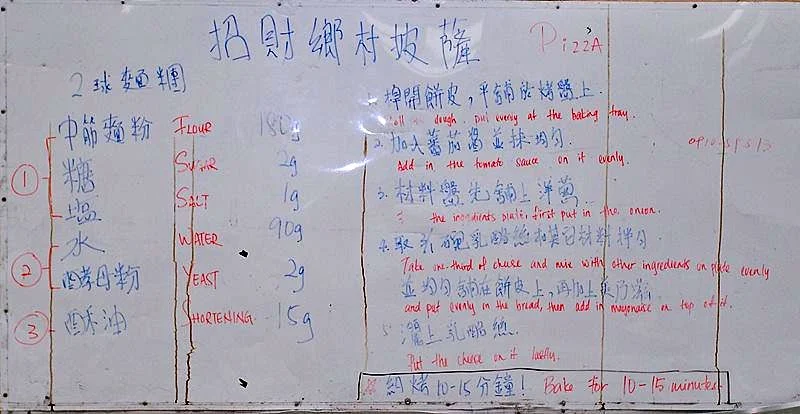 招財鄉村披薩 PizzA
2球麵糰
① 中筋麵粉 FLOUR 180g
糖 SUGAR 2g
塩 SALT 1g
② 水 WATER 90g
酵母粉 YEAST 2g
③ 酥油 SHORTENING 15g
1. 桿開餅皮，平鋪於烤盤上.
dough, put evenly at the baking tray.
2. 加入蕃茄醬並抹均勻
Add in the tomato sauce on it evenly.
3. 材料盤先鋪上洋蔥
the ingredients plate, first put in the onion.
4. 取 乳酪絲和其它材料拌勻
Take one third of cheese and mix with other ingredients on plate evenly
並均勻鋪在餅皮上，再加上美乃滋
and put evenly in the bread, then add in mayonaise on top of it.
5. 灑上乳酪絲.
Put the cheese on it lastly.
☆ 約烤10-15分鐘! Bake for 10-15 minutes